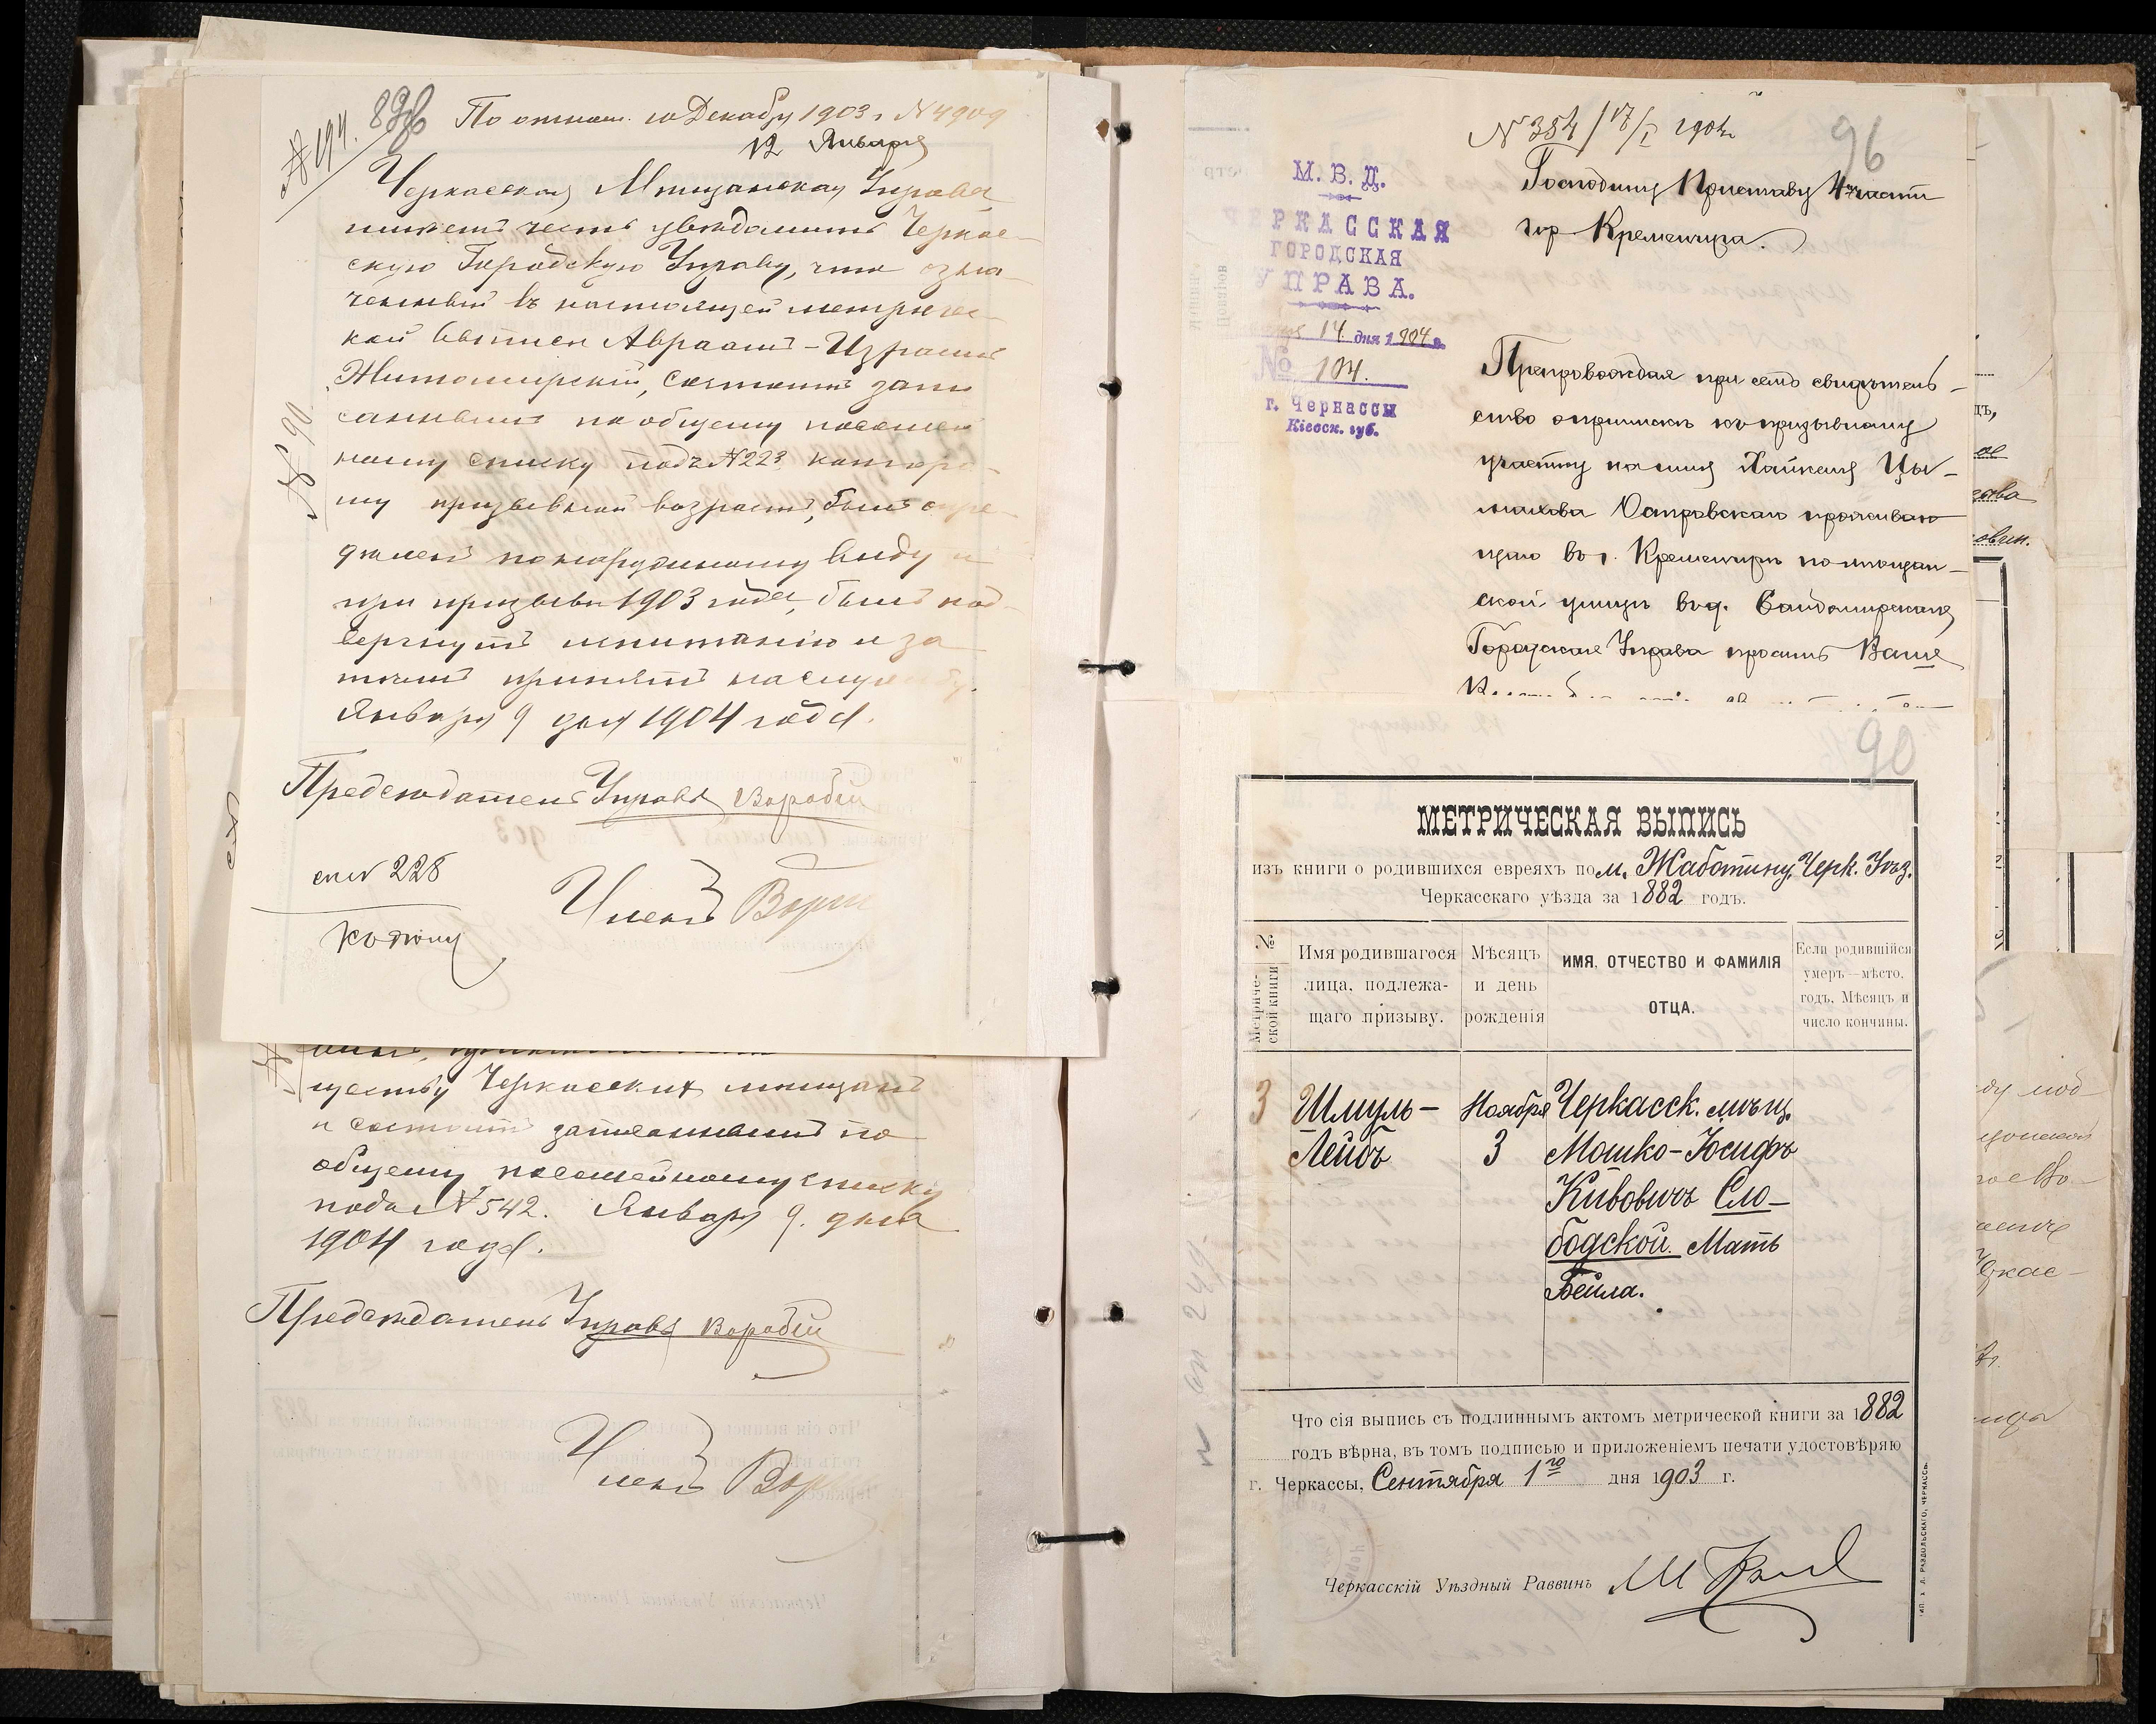 № 194. 89об
По отнош. 10 Декабру 1903 г. № 4909
12 Января
Черкасская Мещанская Управа
имеетъ честь уведомить Черкас-
скую Городскую Управу, что озна-
ченный въ настоящей метричес-
кой выписи Авраамъ-Израиль
Житомирскій, состоитъ запи
саннымъ по общему посемей
ному списку подъ № 223 которо-
му призывной возрастъ, былъ опре-
делен по наружному виду и
при призыве 1903 года, былъ под-
вергнутъ испытанію и за
темъ принятъ на службу.
Января 9 дня 1904 года.
№ 90
Председатель Управы Воробій
Членъ
228
ществу Черкасскихъ мещанъ
и состоитъ записаннымъ по
общему посемейному списку
подъ № 542. Января 9. дня
1904 года.
Председатель Управы Воробій
Членъ
№ 384/17/I 1904 г.
96
М. В. Д.
ЧЕРКАССКАЯ
ГОРОДСКАЯ
УПРАВА.
14 дня 1904 г.
№ 104.
г. Черкассы
Кіевск. губ.
Господину Приставу 4 части
гор Кременчуга.
Препровождая при семъ свидетель-
ство о приписке къ призывному
участку на имя Хайкеля Цы-
Островскаго прожива
щаго въ г. Кременчуге по мещан-
ской улице въ д. Сандомирскаго
Городская Управа проситъ Ваше
90
МЕТРИЧЕСКАЯ ВЫПИСЬ
изъ книги о родившихся евреяхъ по м. Жаботину, Черк. Уѣз.
Черкасскаго уѣзда за 1882 годъ.
№ Метриче-ской книги
Имя родившагося лица, подлежа-щаго призыву.
Мѣсяцъ и день рожденія
ИМЯ, ОТЧЕСТВО И ФАМИЛІЯ ОТЦА.
Если родившійся умеръ—мѣсто, годъ, Мѣсяцъ и число кончины.
3 Шмуль- Ноября Черкасск. мѣщ.
Лейбъ 3 Мошко-Іосифъ
Кивовичъ Сло-
бодской. Мать
Бейла.
Что сія выпись съ подлиннымъ актомъ метрической книги за 1882
годъ вѣрна, въ томъ подписью и приложеніемъ печати удостовѣряю
г. Черкассы, Сентября 1го дня 1903 г.
Черкасскій Уѣздный Раввинъ